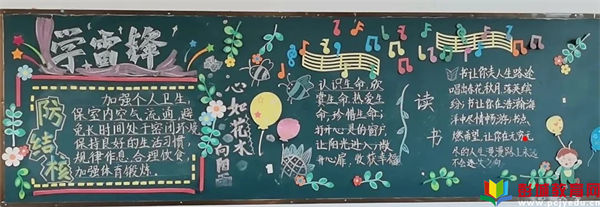 学雷锋
防结核
加强个人卫生
保室内空气流通,避
免长时间处于密闭环境
保持良好的生活习惯,
规律作息,合理饮食,
加强体育锻炼。
心如花木
向阳
认识生命,欣
赏生命,热爱生
命,珍惜生命;
打开心灵的窗户
让阳光进入
心扉,收获幸福
读书
书让你走人生路途
唱出春花秋月落英缤
纷;书让你在浩瀚海
洋中尽情畅游;书点
燃希望,让你在无
尽的人生漫漫路上永远
不会迷
彭城教育网
www.pcjyedu.cn